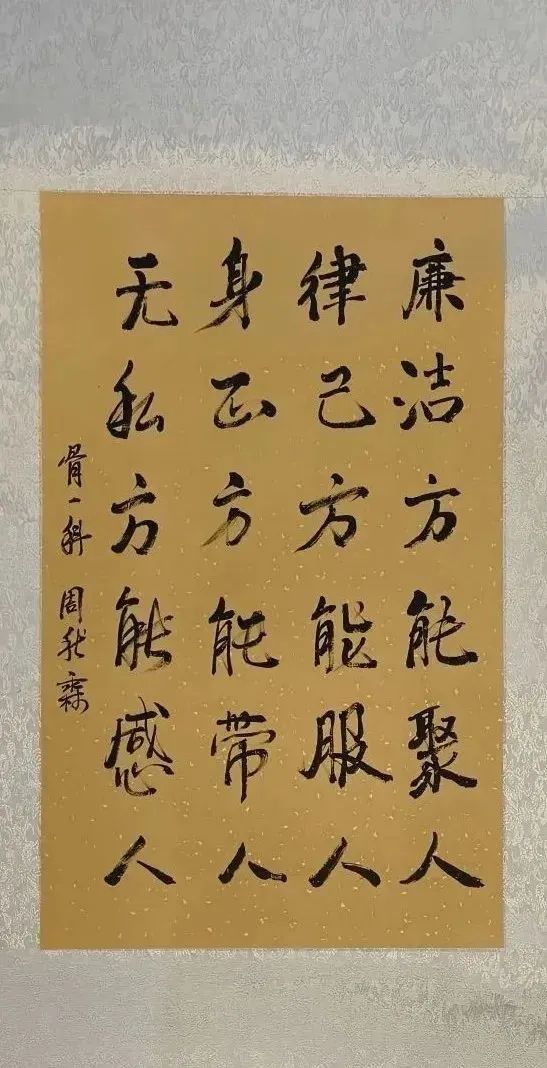 廉洁方能聚人
律己方能服人
身正方能带人
无私方能感人
骨一科 周秋霖